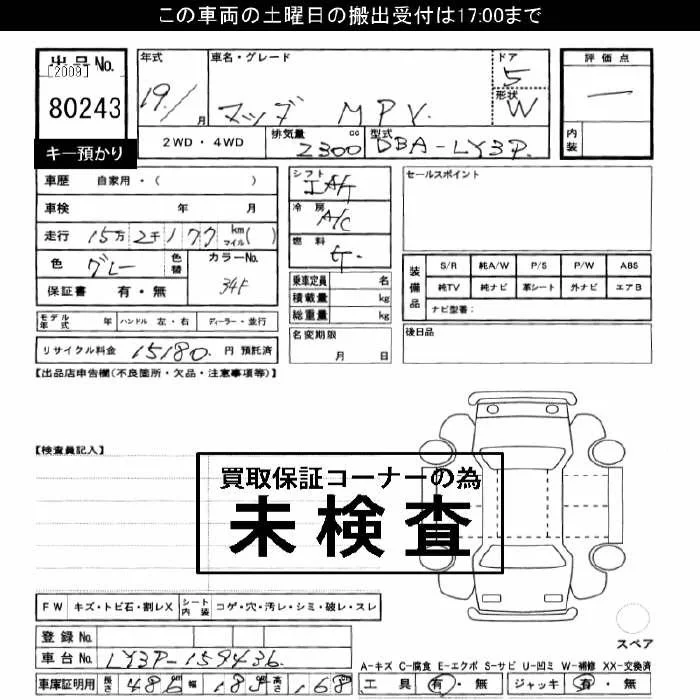 この車両の土曜日の搬出受付は17:00まで
出品No.
[2009]
80243
キー預かり
年式 19/1 月
車名・グレード
マツダ MPV
ドア 5
形状 W
2WD・4WD
排気量 2300 cc
型式 DBA-LY3P
評価点
内装
車歴 自家用・( )
車検 年 月
走行 15万2千177 km マイル( )
色 グレー 色替 カラーNo. 34F
保証書 有・無
シフト IAT
冷房 A/C
燃料
乗車定員 名
積載量 kg
総重量 kg
名変期限
月 日
セールスポイント
装備品
S/R 純A/W P/S P/W ABS
純TV 純ナビ 革シート 外ナビ エアB
ナビ型番:
後日品
モデル年式 年 ハンドル 左・右 ディーラー・並行
リサイクル料金 15180 円 預託済
【出品店申告欄(不良箇所・欠品・注意事項等)】
【検査員記入】
買取保証コーナーの為
未検査
FW キズ・トビ石・割レX シート内装 コゲ・穴・汚レ・シミ・破レ・スレ
スペア
登録No.
車台No. LY3P-159436
車庫証明用 長さ 486 幅 185 高さ 168
A-キズ C-腐食 E-エクボ S-サビ U-凹ミ W-補修 XX-交換済
工具 有・無 ジャッキ 有・無